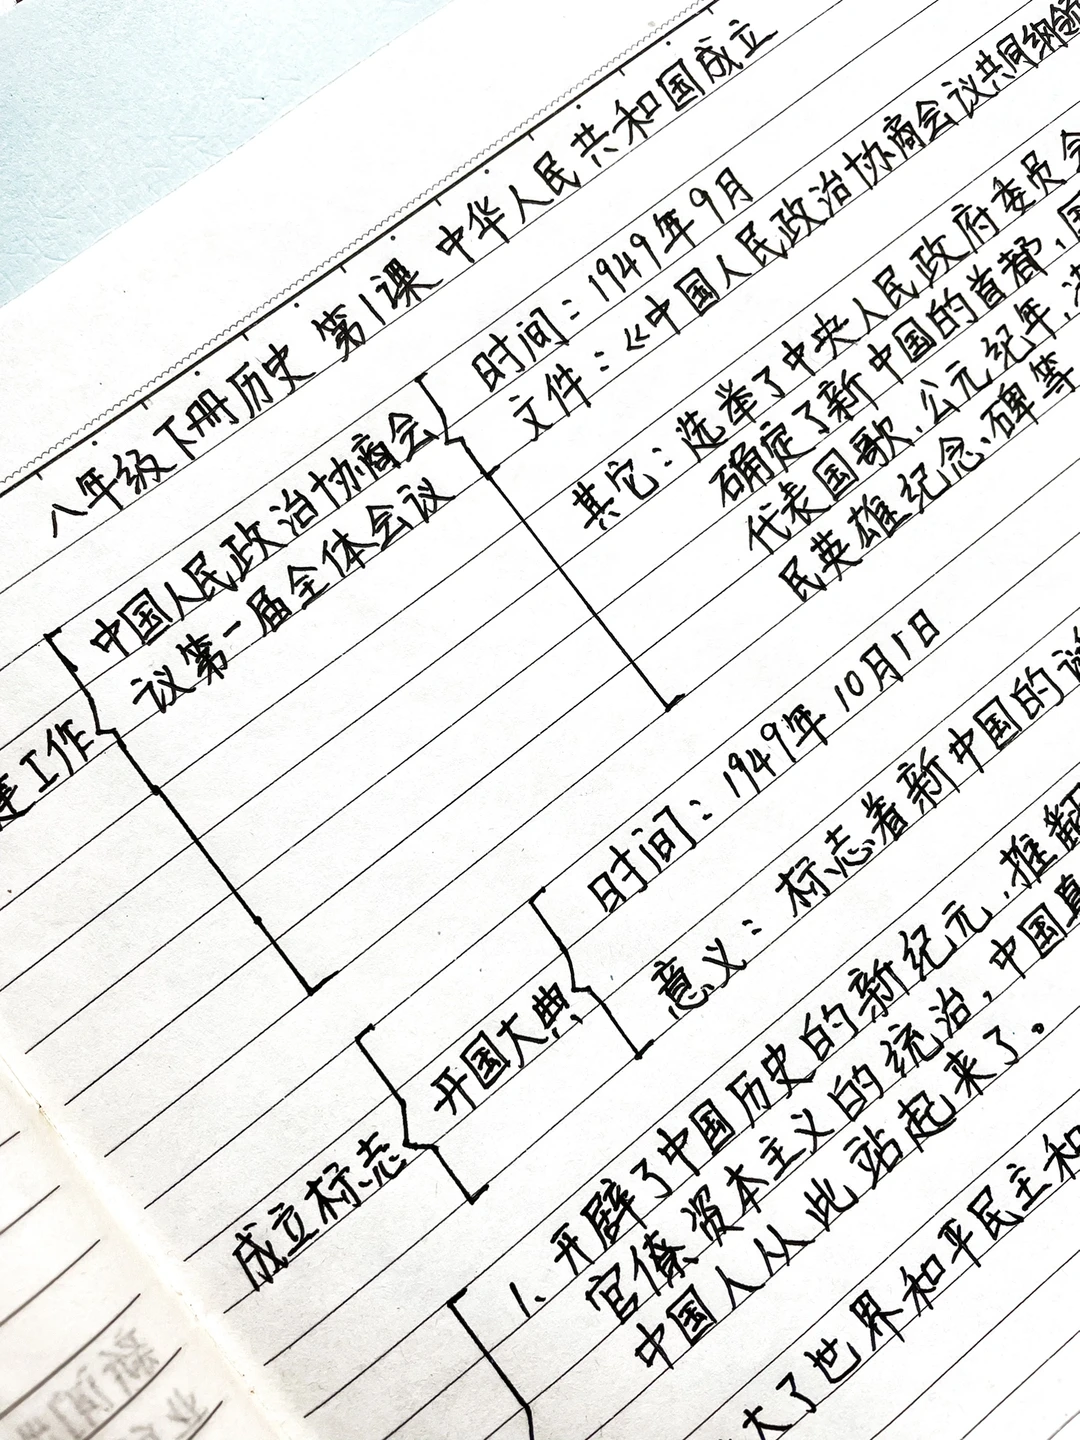 八年级下册历史 第1课 中华人民共和国成立
工作
中国人民政治协商会
议第一届全体会议
时间：1949年9月
文件：《中国人民政治协商会议共同纲领
其它：选举了中央人民政府委员会
确定了新中国的首都，国
代表国歌，公元纪年，决
民英雄纪念碑等
成立标志
开国大典
时间：1949年10月1日
意义：标志着新中国的
1、开辟了中国历史的新纪元，推翻
官僚资本主义的统治，中国真
中国人从此站起来了。
大了世界和平民主和